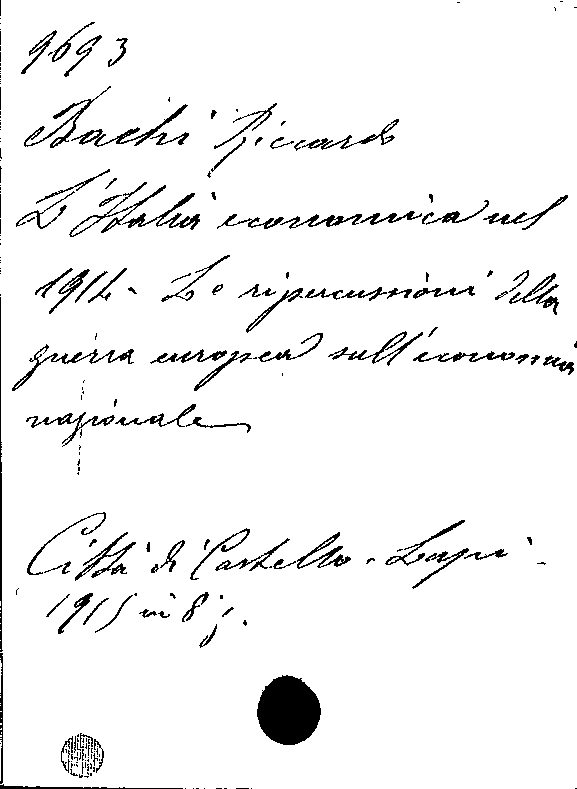 9693
Bachi Riccardo
L'Italia economica nel
1914 - Le ripercussioni della
guerra europea sull'economia
nazionale
Città di Castello - Lapi -
1915 in 8°